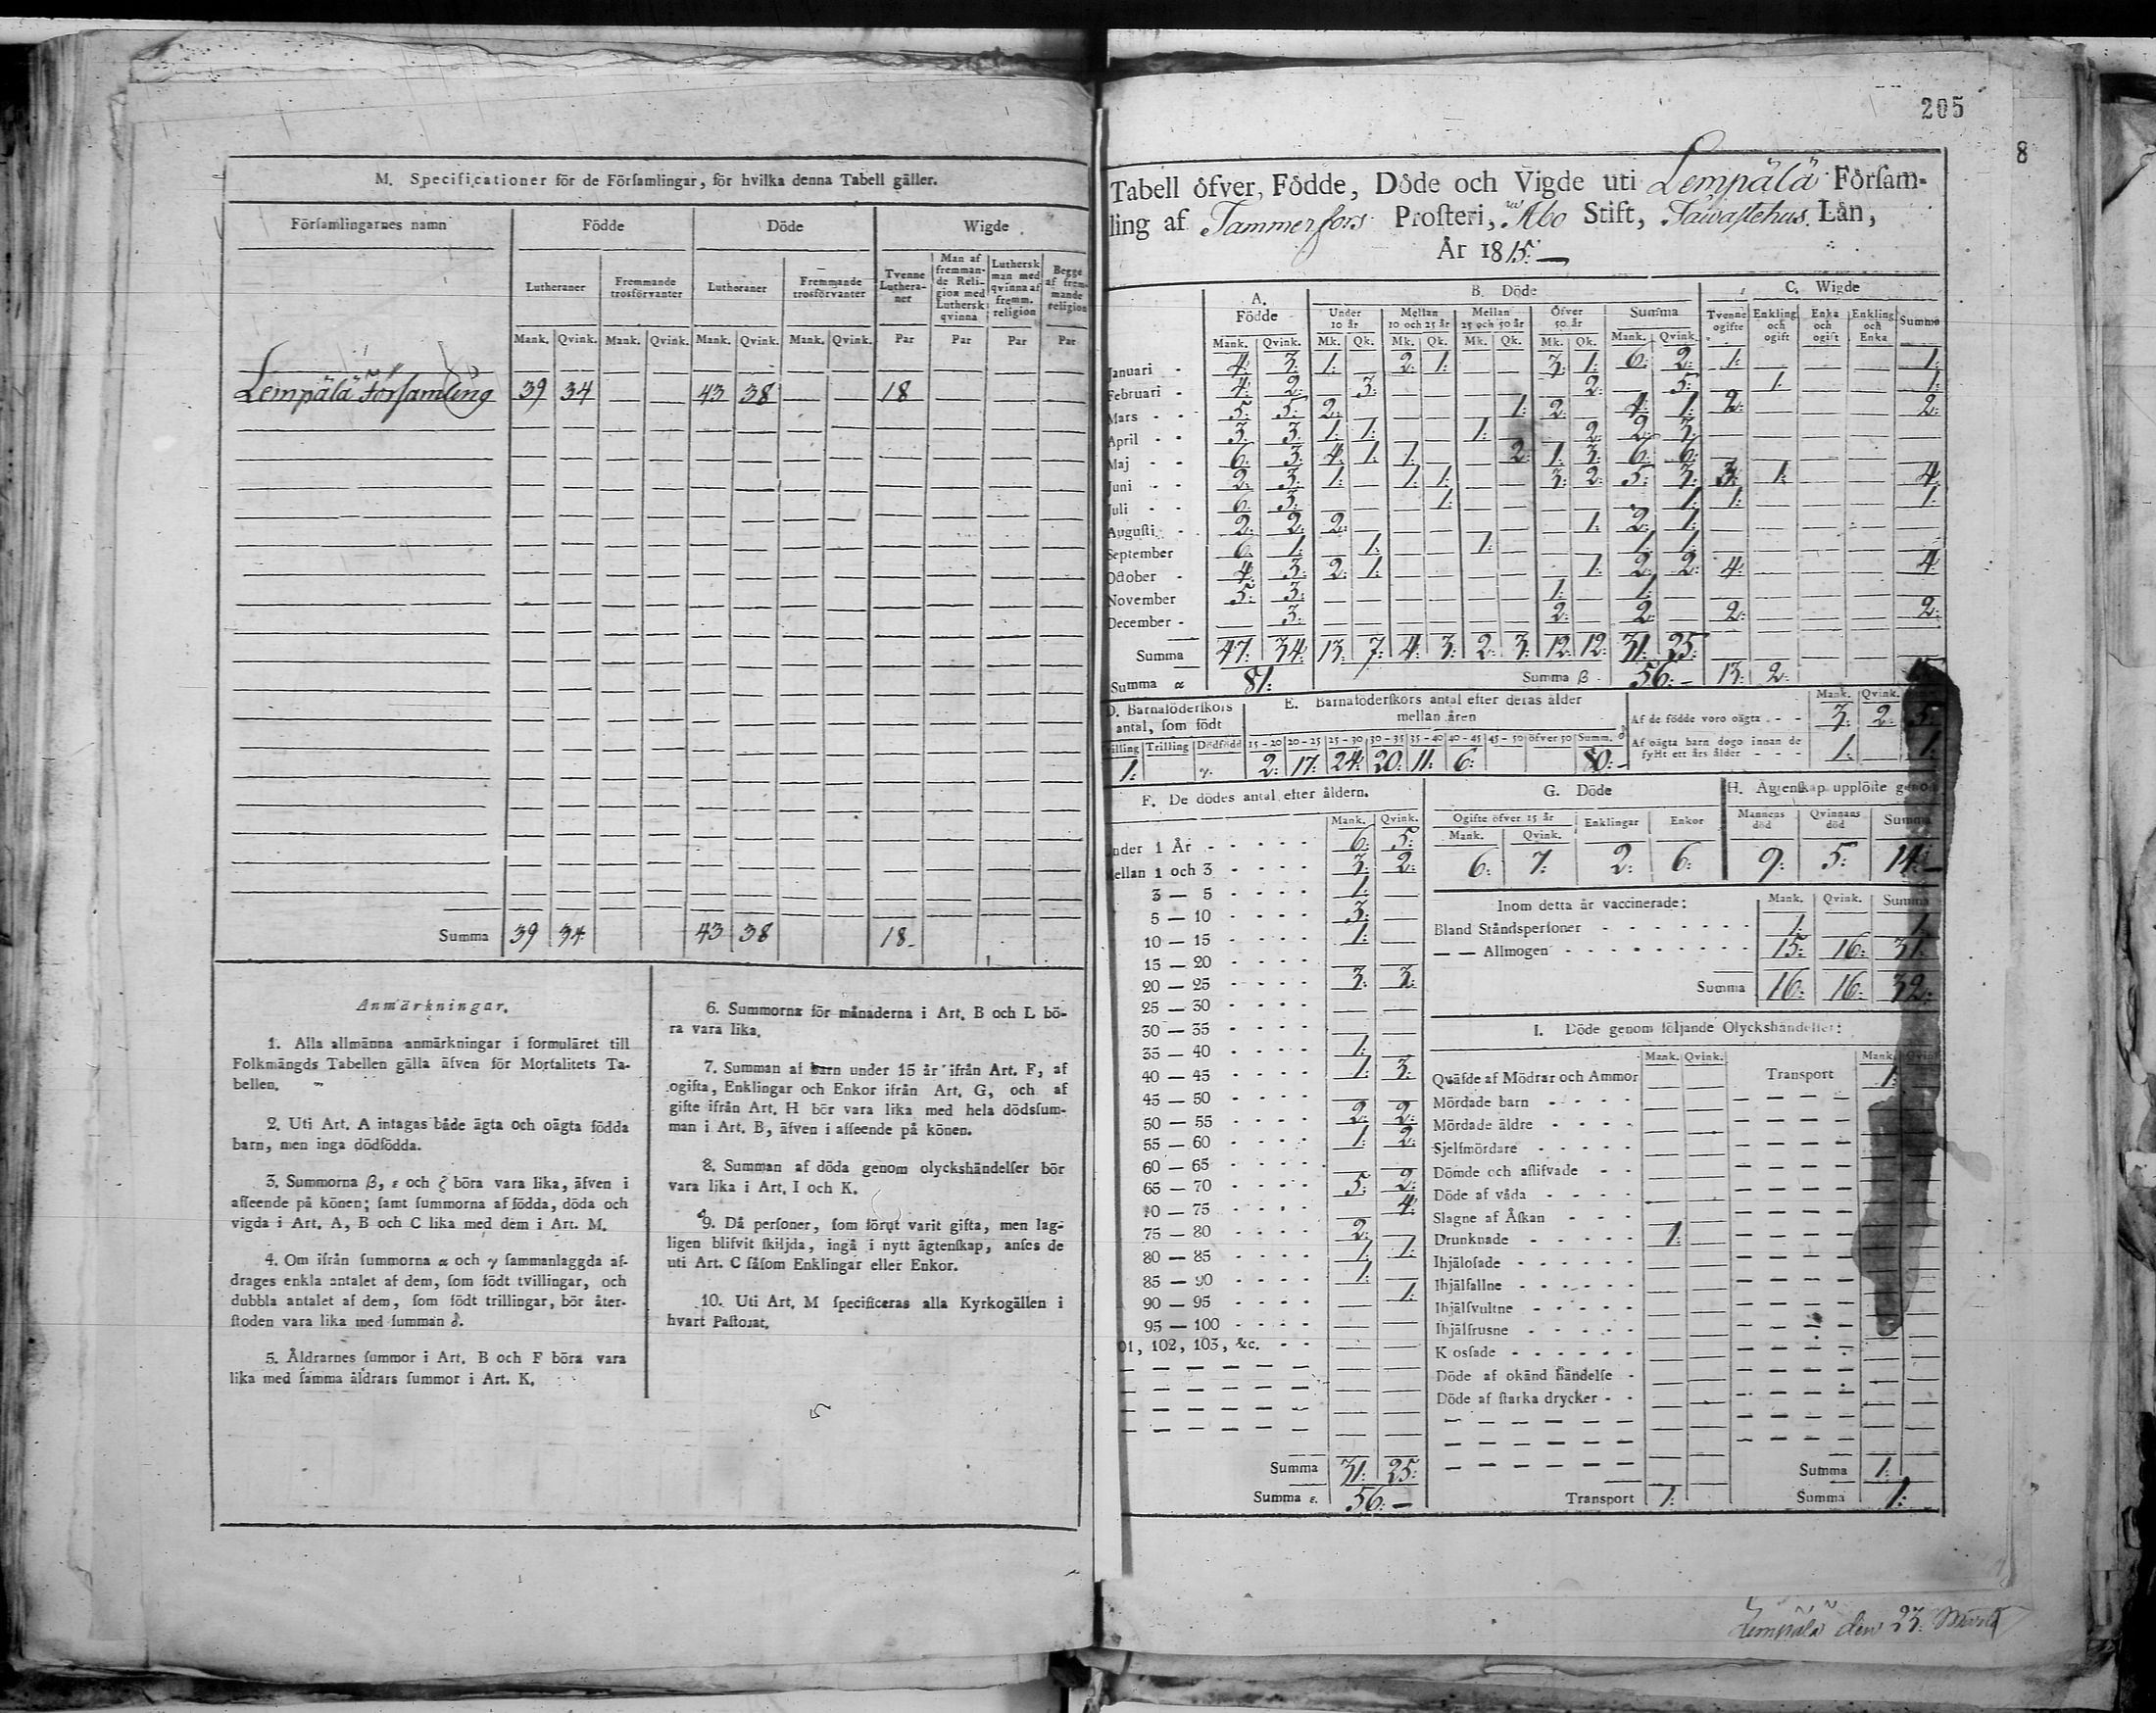 M. Specificationer för de Förſamlingar, för hvilka denna Tabell gäller.
Förſamlingarnes namn Födde Döde Wigde
Lutheraner Fremmande trosförvanter Lutheraner Fremmande trosförvanter Tvenne Lutheraner Man af fremmande Religion med Luthersk qvinna Luthersk man med qvinna af fremm. religion Begge af fremmande religion
Mank. Qvink. Mank. Qvink. Mank. Qvink. Mank. Qvink. Par Par Par Par
Lempälä Förſamling 39 34 — — 43 38 — — 18 — — —
Summa 39 34 43 38 18
Anmärkningar.
1. Alla allmänna anmärkningar i formuläret till
Folkmängds Tabellen gälla äfven för Mortalitets Ta-
bellen.
2. Uti Art. A intagas både ägta och oägta födda
barn, men inga dödfödda.
3. Summorna β, ε och ζ böra vara lika, äfven i
afſeende på könen; ſamt ſummorna af födda, döda och
vigda i Art. A, B och C lika med dem i Art. M.
4. Om ifrån ſummorna α och γ ſammanlaggda af-
drages enkla antalet af dem, ſom födt tvillingar, och
dubbla antalet af dem, ſom födt trillingar, bör åter-
ſtoden vara lika med ſumman δ.
5. Åldrarnes ſummor i Art. B och F böra vara
lika med ſamma åldrars ſummor i Art. K.
6. Summorna för månaderna i Art. B och L bö-
ra vara lika.
7. Summan af barn under 15 år ifrån Art. F, af
ogifta, Enklingar och Enkor ifrån Art. G, och af
gifte ifrån Art. H bör vara lika med hela dödsſum-
man i Art. B, äfven i afſeende på könen.
8. Summan af döda genom olyckshändelſer bör
vara lika i Art. I och K.
9. Då perſoner, ſom förut varit gifta, men lag-
ligen blifvit ſkiljda, ingå i nytt ägtenſkap, anſes de
uti Art. C ſåſom Enklingar eller Enkor.
10. Uti Art. M ſpecificeras alla Kyrkogällen i
hvart Paſtorat.
205
8
Tabell öfver, Födde, Döde och Vigde uti Lempälä Förſam-
ling af Tammerfors Proſteri, Abo Stift, Tawaſtehus Län,
År 1815.
A. Födde B. Döde C. Wigde
Under 10 år Mellan 10 och 25 år Mellan 25 och 50 år Öfver 50 år Summa Tvenne ogifte Enkling och ogift Enka och ogift Enkling och Enka Summa
Mank. Qvink. Mk. Qk. Mk. Qk. Mk. Qk. Mk. Qk. Mank. Qvink.
Januari - 4: 3: 1: — 2: 1: — — 3: 1: 6: 2: 1: — — — 1:
Februari - 4: 2: — 3: — — — — — 2: — 5: — 1: — — 1:
Mars - - 5: 5: 2: — — — — 1: 2: — 4: 1: 2: — — — 2:
April - - 3: 3: 1: 1: — — 1: — — 2: 2: 3: — — — — —
Maj - - 6: 3: 4: 1: 1: — — 2: 1: 3: 6: 6: — — — — —
Juni - - 2: 3: 1: — 1: 1: — — 3: 2: 5: 3: 3: 1: — — 4:
Juli - - 6: 3: — — — 1: — — — — — 1: 1: — — — 1:
Auguſti - 2: 2: 2: — — — — — — 1: 2: 1: — — — — —
September 6: 1: — 1: — — 1: — — — 1: 1: — — — — —
October - 4: 3: 2: 1: — — — — — 1: 2: 2: 4: — — — 4:
November 5: 3: — — — — — — 1: — 1: — — — — — —
December - — 3: — — — — — — 2: — 2: — 2: — — — 2:
Summa 47: 34: 13: 7: 4: 3: 2: 3: 12: 12: 31: 25:
Summa α 81: Summa β 56: — 13: 2:
D. Barnaföderſkors antal, ſom födt
Trilling Dödfödd
1: γ.
E. Barnaföderſkors antal efter deras ålder mellan åren
15-20 20-25 25-30 30-35 35-40 40-45 45-50 öfver 50 Summ. δ
2: 17: 24: 20: 11: 6: 80: —
Mank. Qvink.
Af de födde voro oägta - - 3: 2: 5:
Af oägta barn dogo innan de fyllt ett års ålder - - 1: — 1:
F. De dödes antal efter åldern.
Mank. Qvink.
under 1 År - - - - - 6: 5:
Mellan 1 och 3 - - - - 3: 2:
3 — 5 - - - - 1: —
5 — 10 - - - - 3: —
10 — 15 - - - - 1: —
15 — 20 - - - - — —
20 — 25 - - - - 3: 3:
25 — 30 - - - - — —
30 — 35 - - - - — —
35 — 40 - - - - 1: —
40 — 45 - - - - 1: 3:
45 — 50 - - - - — —
50 — 55 - - - - 2: 2:
55 — 60 - - - - 1: 2:
60 — 65 - - - - — —
65 — 70 - - - - 5: 2:
70 — 75 - - - - — 4:
75 — 80 - - - - 2: —
80 — 85 - - - - 1: 1:
85 — 90 - - - - 1: —
90 — 95 - - - - — 1:
95 — 100 - - - - — —
101, 102, 103, &c. - - — —
Summa 31: 25:
Summa ε. 56: —
G. Döde
Ogifte öfver 15 år Enklingar Enkor
Mank. Qvink.
6: 7: 2: 6:
H. Ägtenſkap upplöſte genom
Mannens död Qvinnans död Summa
9: 5: 14: —
Inom detta år vaccinerade: Mank. Qvink. Summa
Bland Ståndsperſoner - - - 1: — 1:
— — Allmogen - - - 15: 16: 31:
Summa 16: 16: 32:
I. Döde genom följande Olyckshändelſer:
Mank. Qvink. Mank.
Quäfde af Mödrar och Ammor — — Transport 1:
Mördade barn - - - -
Mördade äldre - - - -
Sjelfmördare - - - -
Dömde och aflifvade - -
Döde af våda - - - -
Slagne af Åſkan - - -
Drunknade - - - - - 1: —
Ihjälofade - - - - - -
Ihjälfallne - - - - - -
Ihjälfrusne - - - - -
Döde af okänd händelſe -
Döde af ſtarka drycker - -
Summa 1:
Transport 1: Summa 1:
Lempälä den 23.